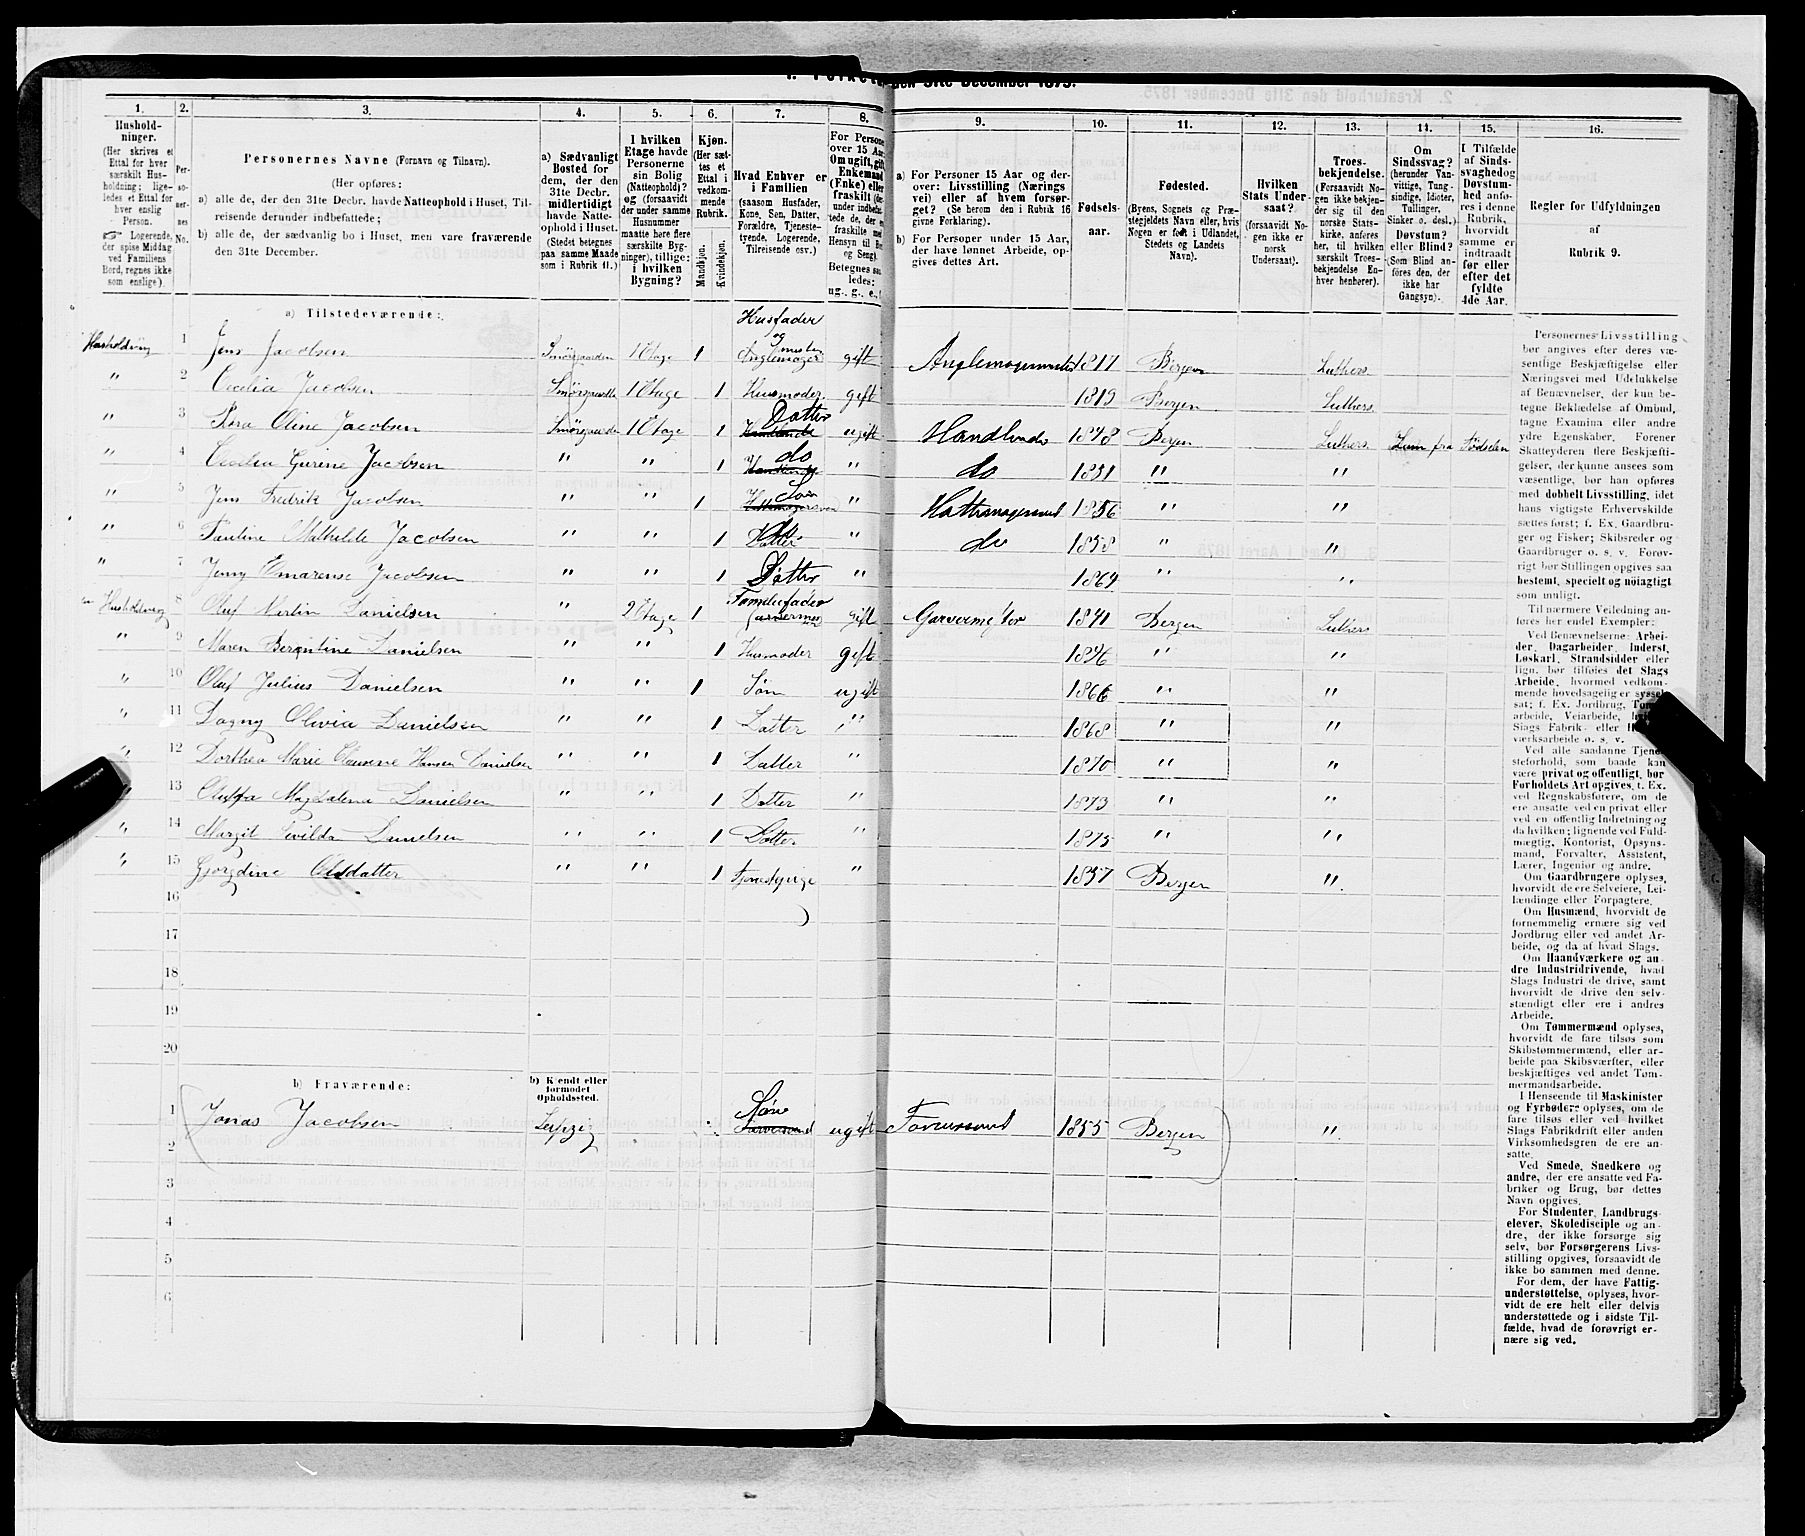 1. Folket den 31te December 1875.
1. 2. 3. 4. 5. 6. 7. 8. 9. 10. 11. 12. 13. 14. 15. 16.
Hushold-
ninger.
(Her skrives et
Ettal for hver
særskilt Hus-
holdning; lige-
ledes et Ettal for
hver enslig
Person.
☞ Logerende,
der spise Middag
ved Familiens
Bord, regnes ikke
som enslige).
Per-
so-
ner-
nes
No.
Personernes Navne (Fornavn og Tilnavn).
(Her opføres:
a) alle de, der den 31te Decbr. havde Natteophold i Huset, Til-
reisende derunder indbefattede;
b) alle de, der sædvanlig bo i Huset, men vare fraværende
den 31te December.
a) Sædvanligt
Bosted for
dem, der den
31te Decbr.
midlertidigt
havde Natte-
ophold i Huset.
(Stedet betegnes
paa samme Maade
som i Rubrik 11.)
I hvilken
Etage havde
Personerne
sin Bolig
(Natteophold)?
og (forsaavidt
der under samme
Husnummer
maatte høre flere
særskilte Byg-
ninger), tillige:
i hvilken
Bygning?
Kjøn.
(Her sæt-
tes et
Ettal i
vedkom-
mende
Rubrik.
Mandkjøn.
Kvindekjøn.
Hvad Enhver er
i Familien
(saasom Husfader,
Kone, Søn, Datter,
Forældre, Tjeneste-
tyende, Logerende,
Tilreisende osv.)
For Persone
over 15 Aar
Om ugift, gift
Enkemand
(Enke) eller
fraskilt
Betegnes saa
ledes:
ug., g., e.,
a) For Personer 15 Aar og der-
over: Livsstilling (Nærings
vei) eller af hvem forsør-
get? (Se herom den i Rubrik 16
givne Forklaring).
b) For Personer under 15 Aar,
der have lønnet Arbeide, op-
gives dettes Art.
Fødsels-
aar.
Fødested.
(Byens, Sognets og Præ-
stegjeldets Navn eller, hvis
Nogen er født i Udlandet,
Stedets og Landets
Navn).
Hvilken
Stats Under-
saat?
(forsaavidt No-
gen ikke er
norsk
Undersaat).
Troes-
bekjendelse.
(Forsaavidt No-
gen ikke bekjen-
der sig til den
norske Stats-
kirke, anføres
her, til hvilken
særskilt Troes-
bekjendelse En-
hver henhører).
Om
Sindssvag?
(herunder Van-
vittige, Tung-
sindige, Idioter,
Tullinger,
Sinker o. desl.)
Døvstum?
eller Blind?
(Som Blind an-
føres den, der
ikke har
Gangsyn).
I Tilfælde
af Sinds-
svaghed og
Døvstum-
hed anfø-
res i denne
Rubrik,
hvorvidt
samme er
indtraadt
før eller
efter det
fyldte
4de Aar.
Regler for Udfyldningen
af
Rubrik 9.
a) Tilstedeværende:
Husholdning 1 Jens Jacobsen Smörgaarden 1 Etage 1 Husfader og Anglemager mester gift Anglemagermester 1817 Bergen Luthers
" 2 Cecilia Jacobsen Smörgaarden 1 Etage 1 Husmoder gift 1819 Bergen Luthers
" 3 Oline Jacobsen Smörgaarden 1 Etage 1 Datter ugift 1848 Bergen Luthers fra Fødselen
" 4 Cecilia Gurine Jacobsen " " 1 do " do 1851 " "
" 5 Jens Fredrik Jacobsen " " 1 Søn " Hattemagersvend 1856 " "
" 6 Pauline Mathilde Jacobsen " " 1 Datter " do 1858 " "
" 7 Jenny Emarense Jacobsen " " 1 Datter " 1864 " "
Husholdning 8 Oluf Martin Danielsen " 2 Etage 1 Familiefader gift Garvermester 1841 Bergen Luthers
" 9 Maren Berentine Danielsen " " 1 Husmoder gift 1846 " "
" 10 Oluf Julius Danielsen " " 1 Søn ugift 1866 " "
" 11 Dagny Olivia Danielsen " " 1 Datter " 1868 " "
" 12 Dorthea Marie Clausine Hansen Danielsen " " 1 Datter " 1870 " "
" 13 Oluffa Magdalena Danielsen " " 1 Datter " 1873 " "
" 14 Margit Danielsen " " 1 Datter " 1875 " "
" 15 Gjorgdine Olsdatter " " 1 Tjenestepige " 1857 Bergen "
16
17
18
19
20
b) Fraværende:
b) Kjendt eller
formodet
Opholdssted.
1 Jonas Jacobsen Leipzig Søn ugift 1855 Bergen "
2
3
4
5
6
Personernes Livsstilling
bør angives efter deres væ-
sentlige Beskjæftigelse eller
Næringsvei med Udelukkelse
af Benævnelser, der kun be-
tegne Beklædelse af Ombud,
tagne Examina eller andre
ydre Egenskaber. Forener
Skatteyderen flere Beskjæfti-
gelser, der kunne ansees som
væsentlige, bør han opføres
med dobbelt Livsstilling, idet
hans vigtigste Erhvervskilde
sættes først; f. Ex. Gaardbru-
ger og Fisker; Skibsreder og
Gaardbruger o. s. v. Forøv-
rigt bør Stillingen opgives saa
bestemt, specielt og nøiagtigt
som muligt.
Til nærmere Veiledning an-
føres her endel Exempler:
Ved Benævnelserne: Arbei-
der, Dagarbeider, Inderst,
Løskarl, Strandsidder eller
lign. bør tilføies det Slags
Arbeide, hvormed vedkom-
mende hovedsagelig er syssel-
sat; f. Ex. Jordbrug, Tomt-
arbeide, Veiarbeide,
Slags Fabrik- eller
værksarbeide o. s. v.
Ved alle saadanne Tjene-
steforhold, som baade kan
være privat og offentligt, bør
Forholdets Art opgives, t. Ex.
ved Regnskabsførere, om de
ere ansatte ved en privat eller
ved en offentlig Indretning og
da hvilken; lignende ved Fuld-
mægtig, Kontorist, Opsyns-
mand, Forvalter, Assistent,
Lærer, Ingeniør og andre.
Om Gaardbrugere oplyses,
hvorvidt de ere Selveiere, Lei-
lændinge eller Forpagtere.
Om Husmænd, hvorvidt de
fornemmelig ernære sig ved
Jordbrug eller ved andet Ar-
beide, og da af hvad Slags.
Om Haandværkere og an-
dre Industridrivende, hvad
Slags Industri de drive, samt
hvorvidt de drive den selv-
stændigt eller ere i andres
Arbeide.
Om Tømmermænd oplyses,
hvorvidt de fare tilsøs som
Skibstømmermænd, eller ar-
beide paa Skibsværfter, eller
beskjæftiges ved andet Tøm-
mermandsarbeide.
I Henseende til Maskinister
og Fyrbødere oplyses, om de
fare tilsøs eller ved hvilket
Slags Fabrikdrift eller anden
Virksomhedsgren de ere an-
satte.
Ved Smede, Snedkere og
andre, der ere ansatte ved Fa-
briker og Brug, bør dettes
Navn opgives.
For Studenter, Landbrugs-
elever, Skoledisciple og an-
dre, der ikke forsørge sig
selv, bør Forsørgerens Livs-
stilling opgives, forsaavidt de
ikke bo sammen med denne.
For dem, der have Fattig-
understøttelse, oplyses, hvor-
vidt de ere helt eller delvis
understøttede og i sidste Til-
fælde, hvad de forøvrigt er-
nære sig ved.